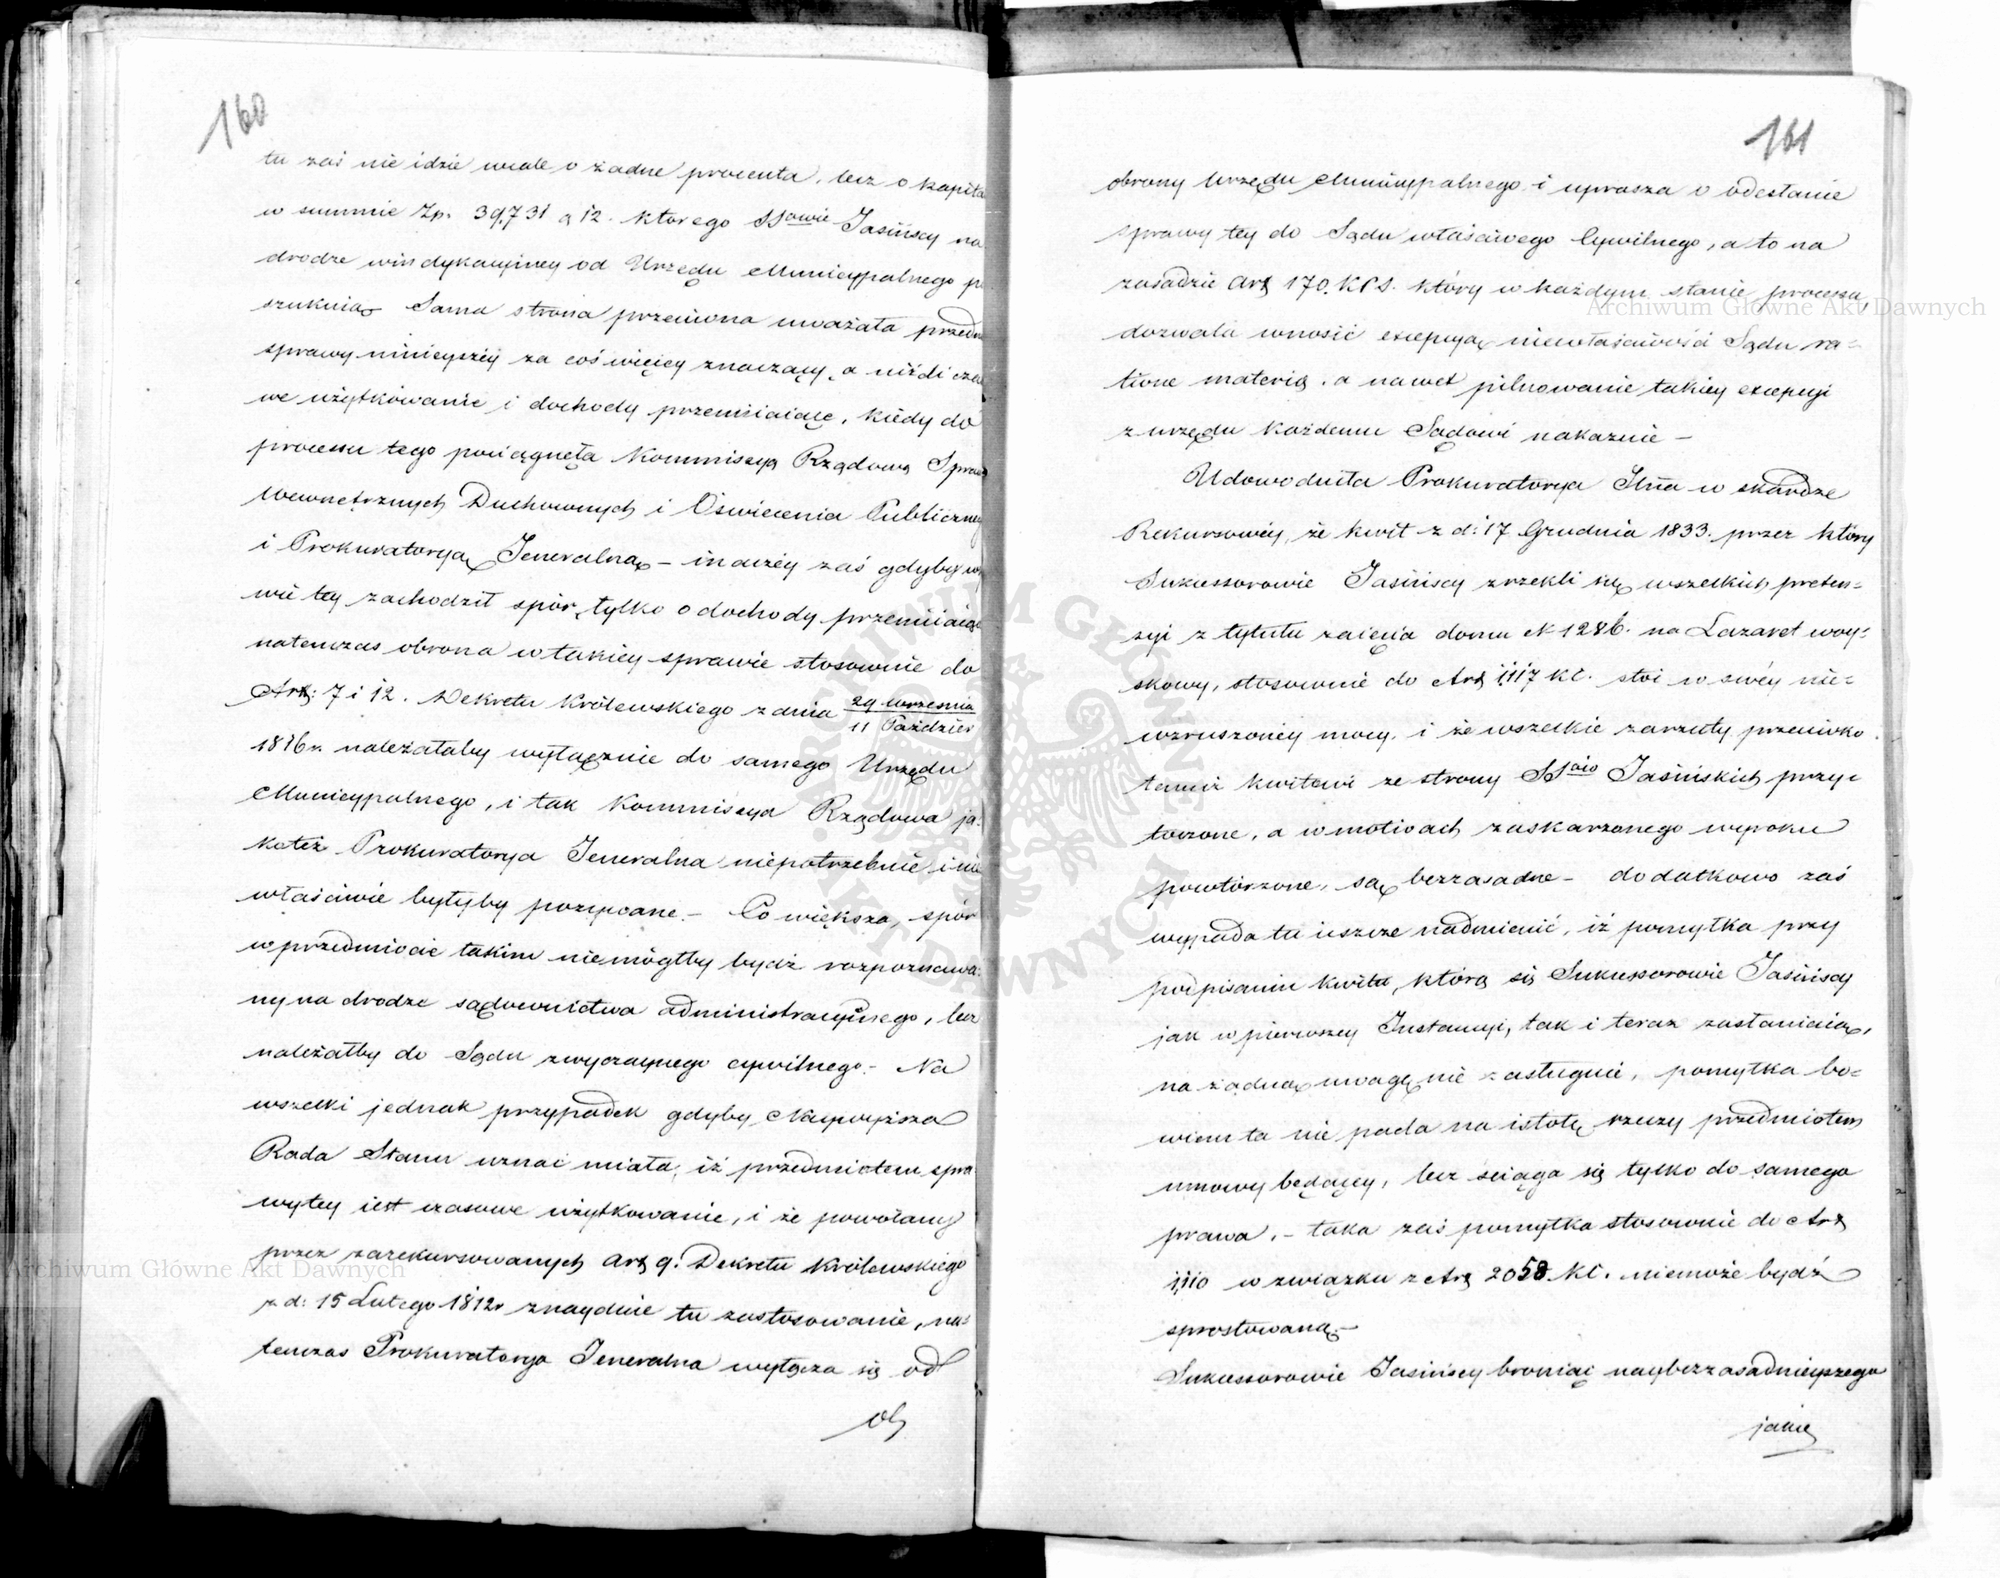 160
tu zaś nie idzie wcale o żadne procenta, lecz o kapita
w summie Zp. 39,731 g 12. ktorego SSowie Jasińscy na
drodze windykacyiney od Urzędu Municypalnego po
szukuią. Sama strona przeciwna uważała przedm
sprawy ninieyszéy za coś więcéy znaczący, a niżdi czas
we użytkowanie i dochody przemiiaiące, kiedy do
processu tego pociągnęła Kommissyą Rządową Spraw
Wewnętrznych Duchownych i Oświecenia Publiczneg
i Prokuratoryą Jeneralną – inaczéy zaś gdyby w s
wie téy zachodził spór tylko o dochody przemiiaiąc
natenczas obrona w takiéy sprawie stosownie do
Art: 7 i 12. Dekretu Królewskiego z dnia 29 Września
11 Paździer
1816 r. należałaby wyłącznie do samego Urzędu
Municypalnego, i tak Kommissya Rządowa ja-
koteż Prokuratorya Jeneralna niepotrzebnie i nie
właściwie byłyby pozywane. – Co większa, spór
w przedmiocie takim niemógłby bydź rozpoznawa
ny na drodze sądownictwa administracyinego, lecz
należałby do Sądu zwyczaynego cywilnego. – Na
wszelki jednak przypadek gdyby Naywyższa
Rada Stanu uznać miała, iż przedmiotem spra
wy téy iest czasowe użytkowanie, i że powołany
przez zarekursowanych Art 9. Dekretu Królewskiego
z d: 15 Lutego 1812 r znayduie tu zastosowanie, na-
tenczas Prokuratorya Jeneralna wyłącza się od
ob
161
obrony Urzędu Municypalnego i uprasza o odesłanie
sprawy téy do Sądu właściwego Cywilnego, a to na
zasadzie Art 170. KPS. który w każdym stanie processu,
dozwala wnosić excepcyą niewłaściwości Sądu ra-
tione materiæ, a nawet pilnowanie takiéy excepcyi
z urzędu każdemu Sądowi nakazuie –
Udowodniła Prokuratorya Jlna w skardze
Rekursowéy, że kwit z d: 17 Grudnia 1833. przez który
Sukcessorowie Jasińscy zrzekli się wszelkich preten-
syi z tytułu zaięcia domu N 1286. na Lazaret woy-
skowy, stosownie do Art 1,117 KC. stoi w swéy nie-
wzruszonéy mocy, i że wszelkie zarzuty przeciwko
temuż kwitowi ze strony SSów Jasińskich przy-
toczone, a w motivach zaskarzonego wyroku
powtórzone, są bezzasadne – dodatkowo zaś
wypada tu ieszcze nadmienić, iż pomyłka przy
podpisaniu kwitu, którą się Sukcessorowie Jasińscy
jak w pierwszéy Instancyi, tak i teraz zasłaniaią,
na żadną uwagę nie zasługuie, pomyłka bo-
wiem ta nie pada na istotę rzeczy przedmiotem
umowy będącéy, lecz ściąga się tylko do samego
prawa, – taka zaś pomyłka stosownie do Art
1,110 w związku z Art 2058 KC. niemoże bydź
sprostowaną. –
Sukcessorowie Jasińscy broniąc naybezzasadnieyszego
jakie
Archiwum Główne Akt Dawnych
Archiwum Główne Akt Dawnych
ARCHIWUM GŁÓWNE AKT DAWNYCH